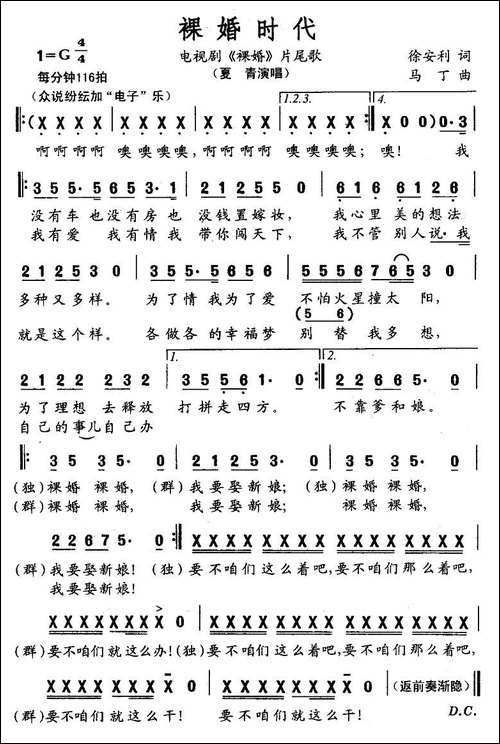 裸婚时代
1=G 4/4
电视剧《裸婚》片尾歌
徐安利 词
每分钟116拍
(夏 青演唱)
马 丁 曲
(众说纷纭加“电子”乐)
1.2.3. 4.
‖:(X X X X X X X X X X X X X X X X :‖ X 0 0) 0·3
啊啊啊啊 噢噢噢噢,啊啊啊啊 噢噢噢噢; 噢! 我
‖: 3 5 5· 5 6 5 3· 1 | 2 1 2 2 5 0 | 6 1 6 6 1 2 6
没有车 也没有房 也 没钱置嫁妆, 我心里 美的想法
我有爱 我有情我 带你闯天下, 我不管 别人说·我
2 1 2 5 3 0 | 3 5 5· 5 6 5 6 | 5 5 5 6 7 6 5 0
多种又多样。 为了情我为了爱 不怕火星撞太 阳,
(5 6)
就是这个样。 各做各的幸福梦 别 替 我多想,
1. 2.
2 1 2 2 5 3 2 0 | 3 5 5 6 1· 0 :‖ 2 2 6 6 5· 0
为了理想 去释放 打拼走四方。 不靠爹和娘。
自己的事儿自己办
‖: 3 5 3 5· 0 | 2 1 2 5 3· 0 | 3 5 3 5· 0
(独)裸婚 裸婚, (群)我要娶新娘; (独)裸婚 裸婚,
(群)裸婚 裸婚, 我要娶新娘; 裸婚 裸婚,
2 2 6 7 5· 0 :‖ X X X X X X X X X X X X X X X X
(群)我要娶新娘! (独)要不咱们这么着吧,要不咱们那么着吧,
我要娶新娘!
X X X X X X X X 0 | X X X X X X X X X X X X X X X X
(群)要不咱们就这么办!(独)要不咱们这么着吧,要不咱们那么着吧,
X X X X X X X X 0 | X X X X X X X X 0 (返前奏渐隐) ‖
(群)要不咱们就这么干! 要不咱们就这么干! D.C.